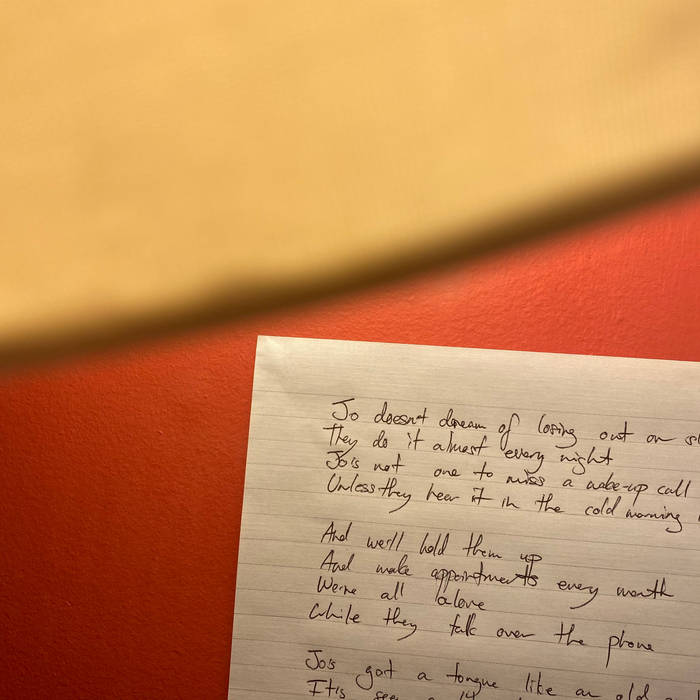 Jo doesn't dream of losing out on
They do it almost every night
Jo's not one to miss a wake-up call
Unless they hear it in the cold morning
And we'll hold them up
And make appointments every month
We're all alone
While they talk over the phone
Jo's got a tongue like an old
It's seen a